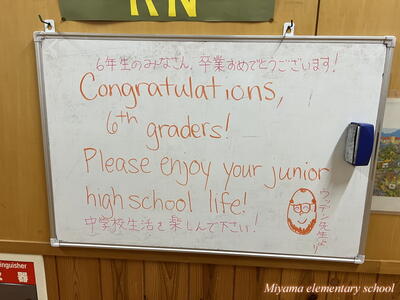 RN
6年生のみなさん、卒業おめでとうございます!
Congratulations,
6th graders!
Please enjoy your junior
high school life!
中学校生活を楽しんで下さい!
先生より
inguisher
器
Miyama elementary school